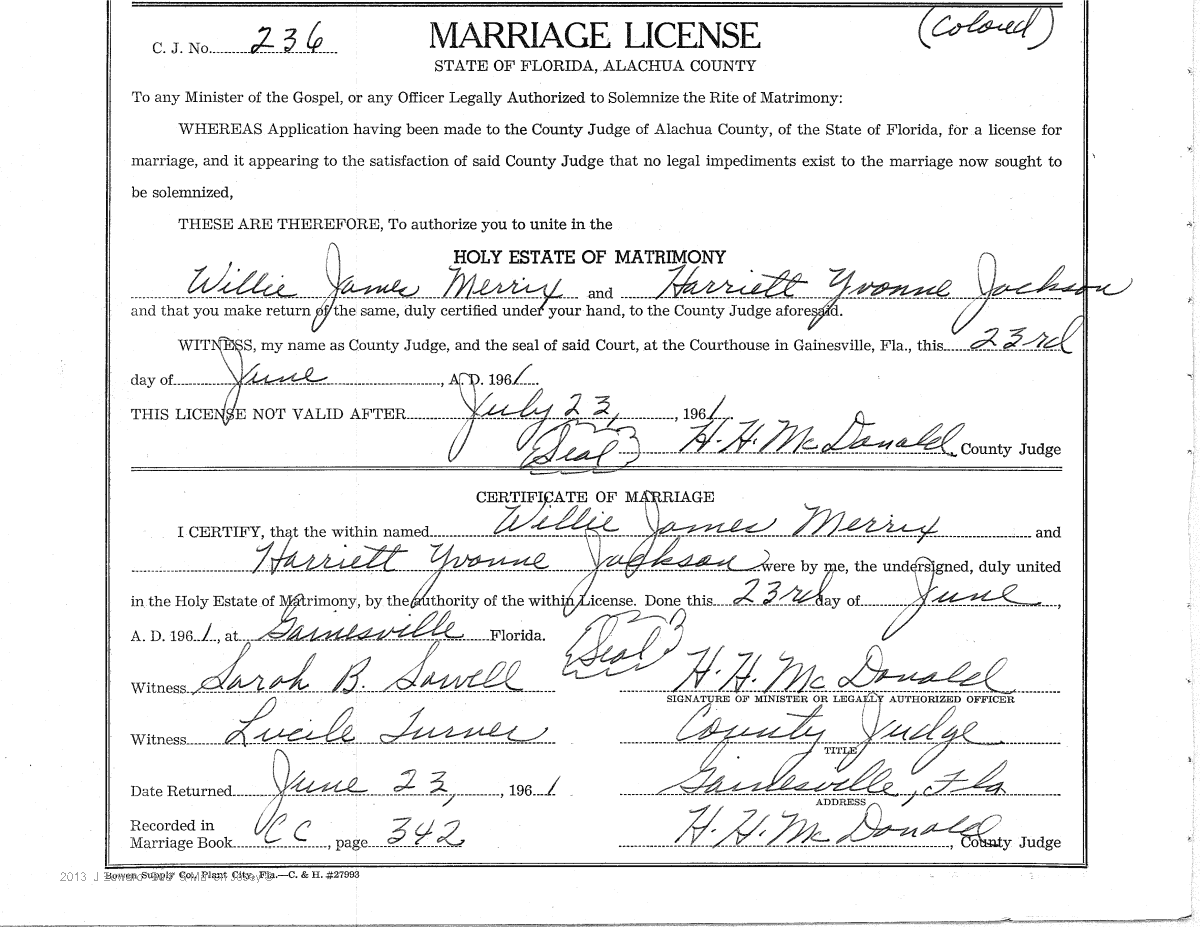 (Colored)
C. J. No. 236 MARRIAGE LICENSE
STATE OF FLORIDA, ALACHUA COUNTY
To any Minister of the Gospel, or any Officer Legally Authorized to Solemnize the Rite of Matrimony:
WHEREAS Application having been made to the County Judge of Alachua County, of the State of Florida, for a license for
marriage, and it appearing to the satisfaction of said County Judge that no legal impediments exist to the marriage now sought to
be solemnized,
THESE ARE THEREFORE, To authorize you to unite in the
HOLY ESTATE OF MATRIMONY
Willie James Merrix and Harriett Yvonne Jackson
and that you make return of the same, duly certified under your hand, to the County Judge aforesaid.
WITNESS, my name as County Judge, and the seal of said Court, at the Courthouse in Gainesville, Fla., this 23rd
day of June, A. D. 1961
THIS LICENSE NOT VALID AFTER July 23, 1961
(Seal) H. H. McDonald, County Judge
CERTIFICATE OF MARRIAGE
I CERTIFY, that the within named Willie James Merrix and
Harriett Yvonne Jackson were by me, the undersigned, duly united
in the Holy Estate of Matrimony, by the authority of the within License. Done this 23rd day of June,
A. D. 1961, at Gainesville Florida. (Seal)
Witness Sarah B. Sowell H. H. McDonald
SIGNATURE OF MINISTER OR LEGALLY AUTHORIZED OFFICER
Witness Lucile Turner County Judge
TITLE
Date Returned June 23, 1961 Gainesville, Fla
ADDRESS
Recorded in
Marriage Book CC, page 342 H. H. McDonald, County Judge
Bowen Supply Co., Plant City, Fla.—C. & H. #27993
2013 J